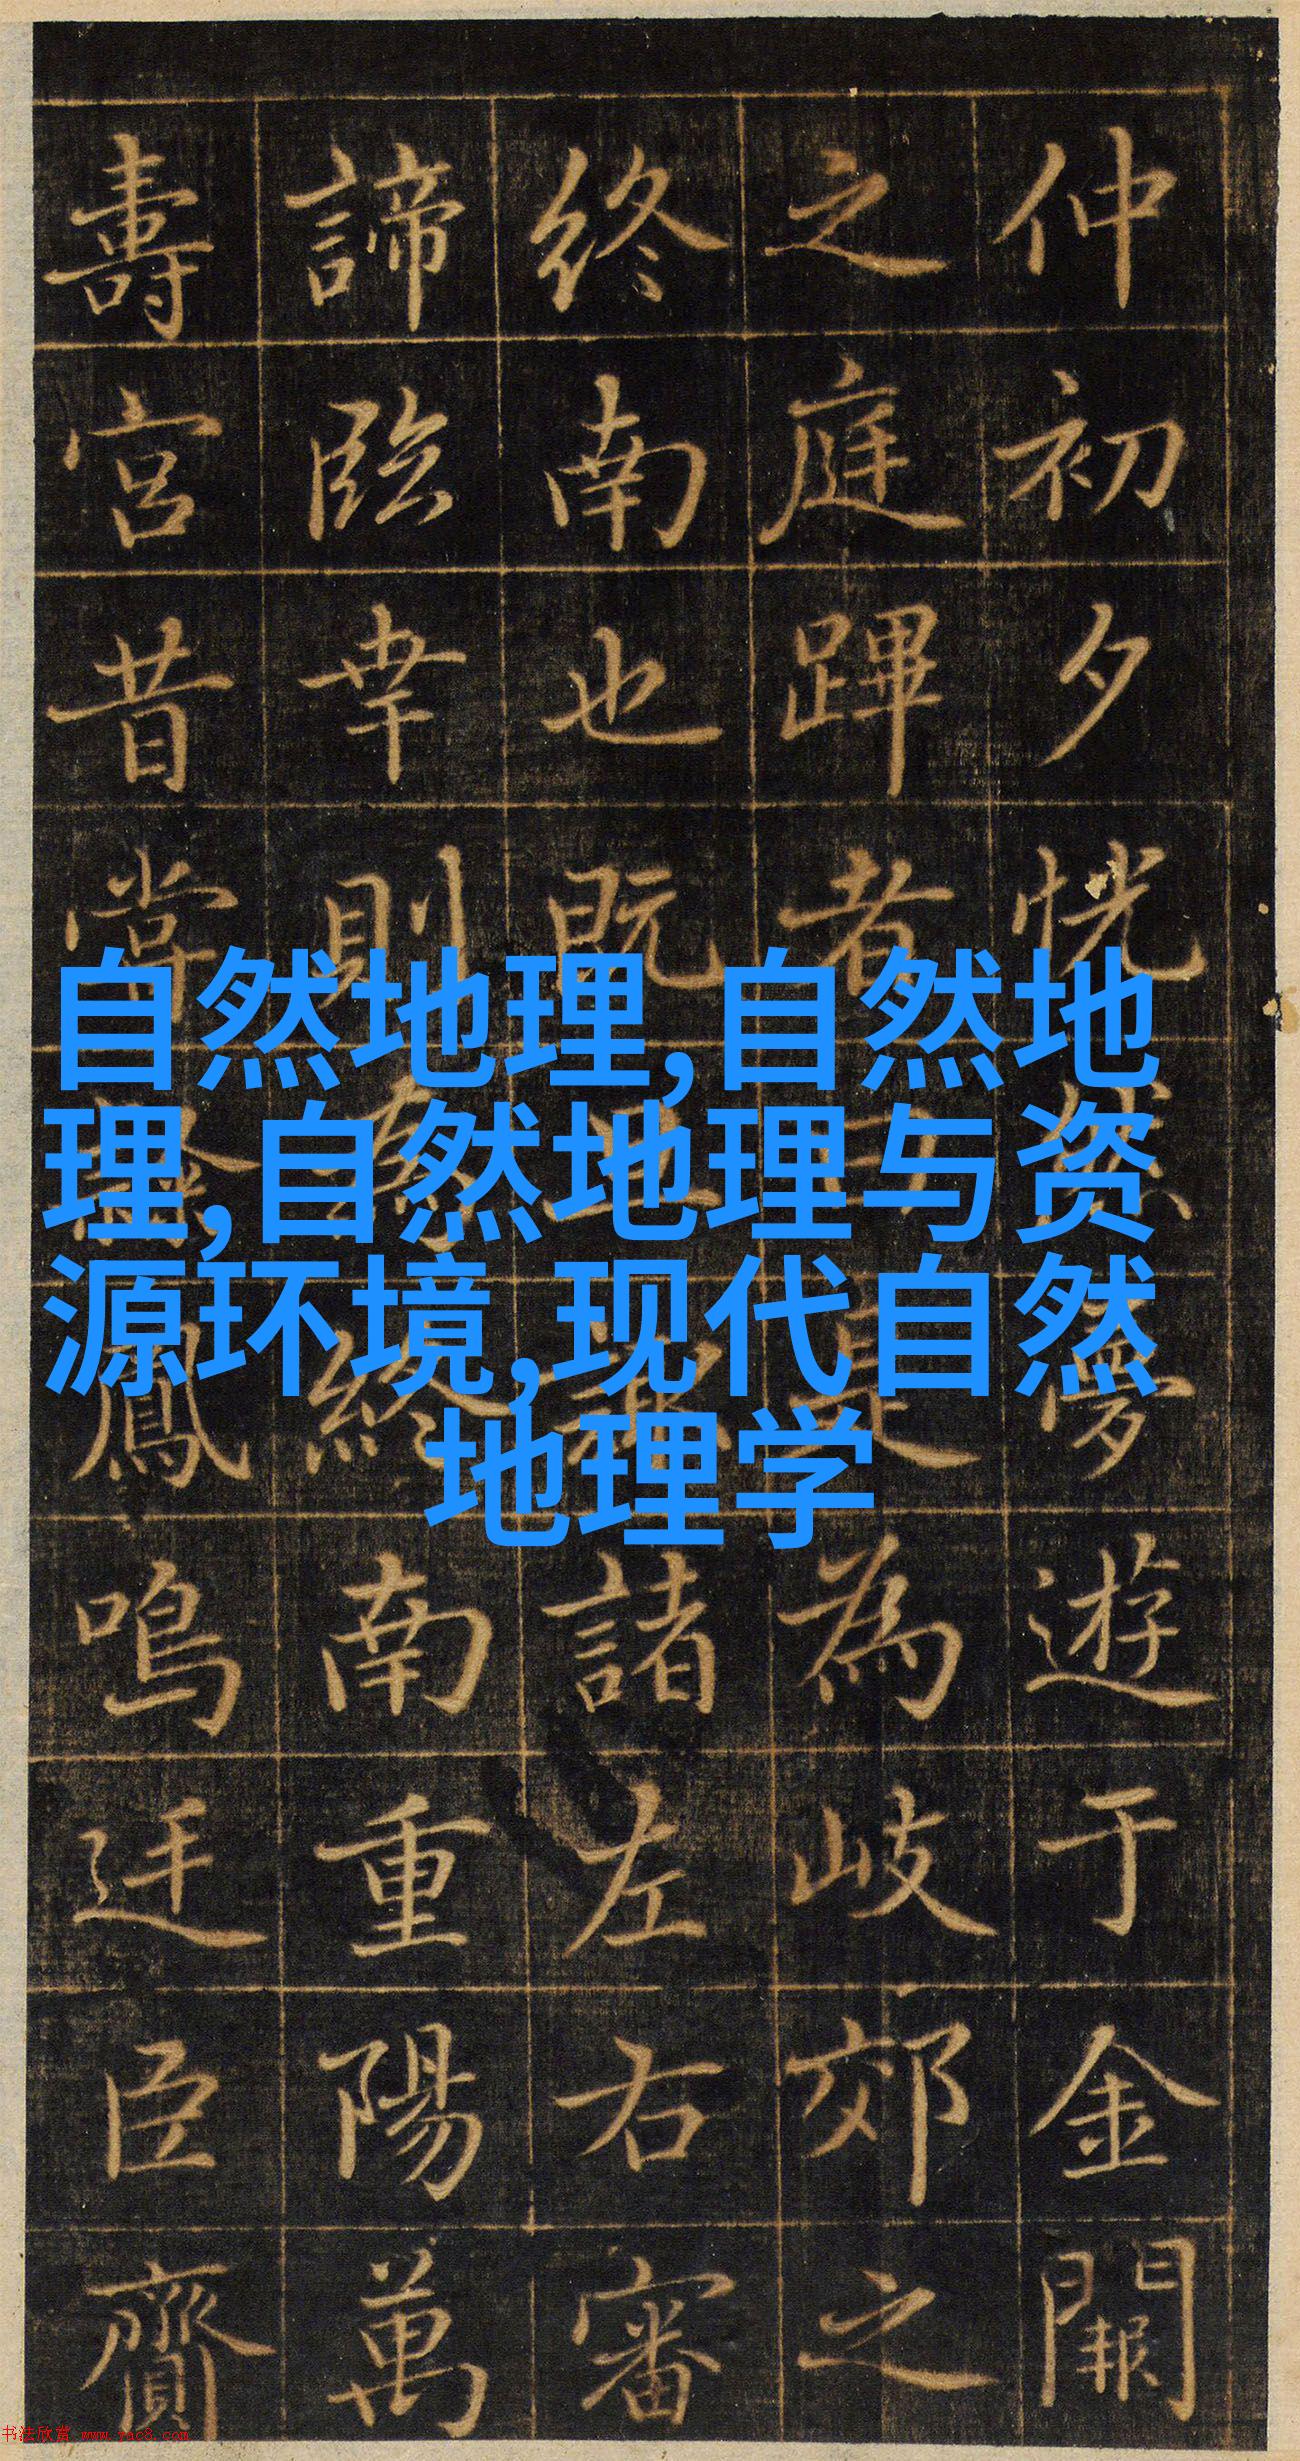 仲初夕恍然夢遊于金闕
之庭蹕者是為岐郊之
終南也既諸左右審
諦臨幸則終南重陽萬
壽宮昔嘗鳳鳴廷臣齎
自然地理,自然地
理,自然地理与资
源环境,现代自然
地理学
书法欣赏 www.yac8.com